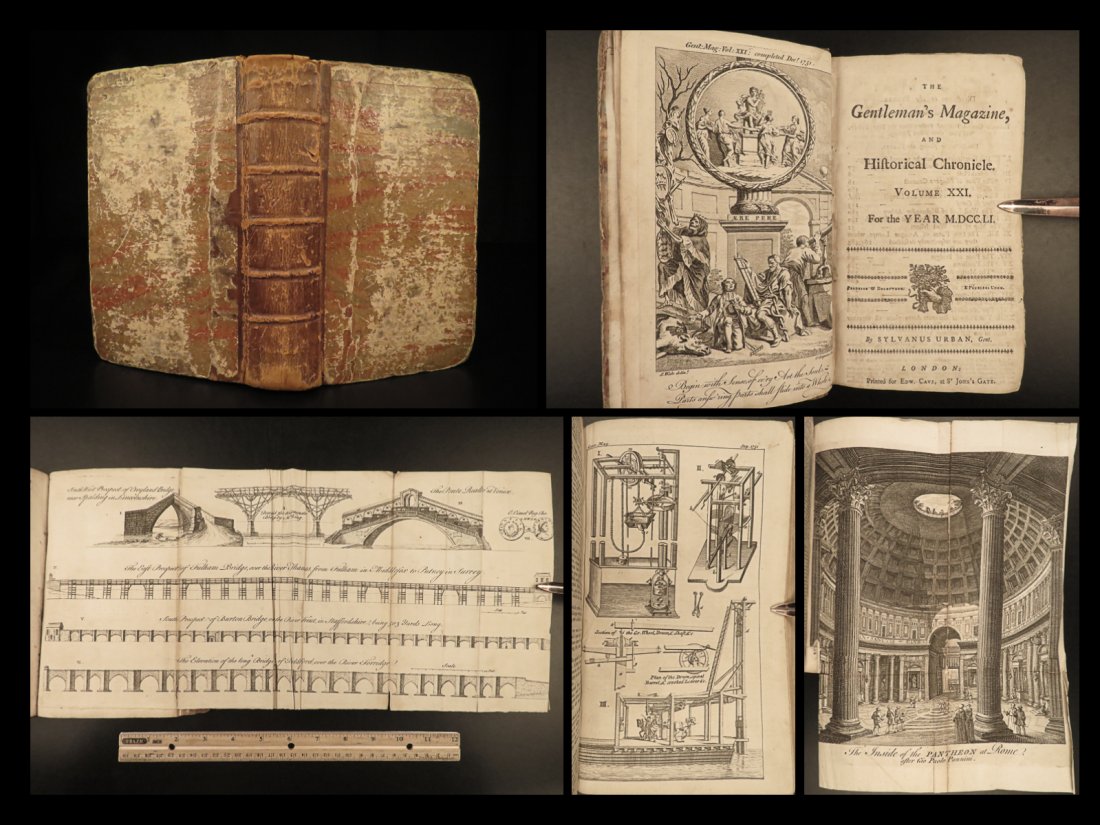 Gent: Mag: Vol: XXI. completed Decr. 1751.
ÆRE PERE
Begin with Sense, of ev'ry Art the Soul;
Parts answ'ring parts shall slide into a Whole
THE
Gentleman's Magazine,
AND
Hiſtorical Chronicle.
VOLUME XXI.
For the YEAR M.DCC.LI.
E PLURIBUS UNUM.
By SYLVANUS URBAN, Gent.
LONDON:
Printed for EDW. CAVE, at St JOHN'S GATE.
South West Prospect of Croyland Bridge
near Spalding in Lincolnshire
the Ponte Rialto at Venice
The East Prospect of Fulham Bridge, over the River Thames from Fulham in Middlesex to Putney in Surrey
South Prospect of Burton Bridge, on the River Trent, in Staffordshire, being 503 Yards Long.
The Elevation of the long Bridge of Biddiford over the River Torridge
Scale
1 2 3 4 5 6 7 8 9 10 11 12
Gent. Mag.
1751
I.
II.
Section of the Gt. Wheel, Drum, & Shaft, &c
Plan of the Drum, spiral
Barrel, & crooked Leaver &c.
III.
The Inside of the PANTHEON at Rome
after Gio Paolo Pannini.